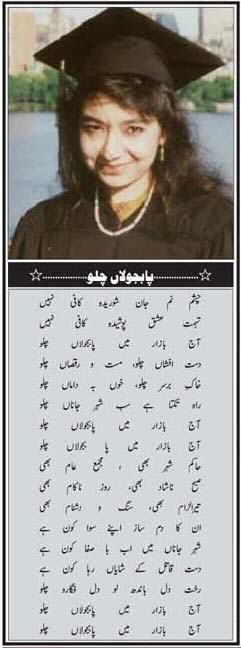 پابجولاں چلو
چشم نم جان شوریدہ کافی نہیں
تہمت عشق پوشیدہ کافی نہیں
آج بازار میں پابجولاں چلو
دست افشاں چلو، مست و رقصاں چلو
خاک برسر چلو، خوں بہ داماں چلو
راہ تکتا ہے سب شہر جاناں چلو
آج بازار میں پابجولاں چلو
آج بازار میں پا بجولاں چلو
حاکم شہر بھی، مجمع عام بھی
صبح ناشاد بھی، روز ناکام بھی
تیرالزام بھی، سنگ و دشنام بھی
ان کا دم ساز اپنے سوا کون ہے
شہر جاناں میں اب با صفا کون ہے
دست قاتل کے شایاں رہا کون ہے
رخت دل باندھ لو دل فگارو چلو
آج بازار میں پابجولاں چلو
آج بازار میں پابجولاں چلو